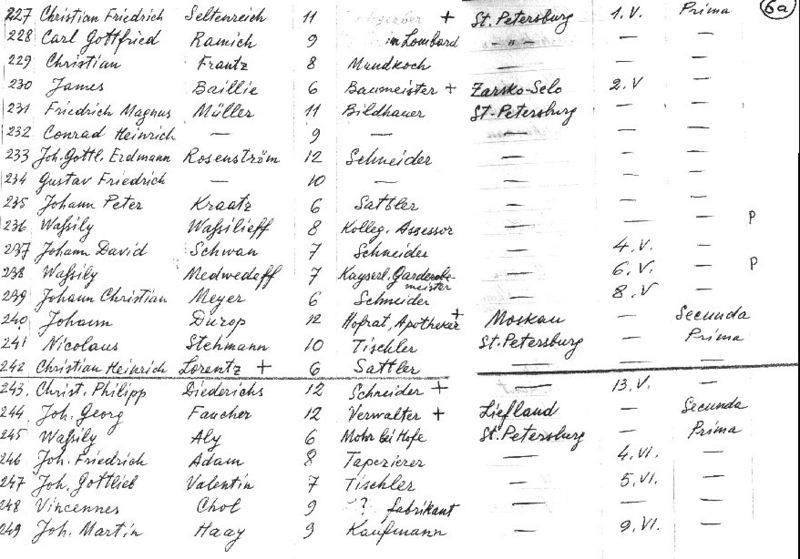 227 Christian Friedrich Seltenreich 11 + St. Petersburg 1. V. Prima 6a
228 Carl Gottfried Ramich 9 im Lombard — „ — — —
229 Christian Frantz 8 Mundkoch — — —
230 James Baillie 6 Baumeister + Zarsko-Selo 2. V —
231 Friedrich Magnus Müller 11 Bildhauer St. Petersburg — —
232 Conrad Heinrich — 9 — — — —
233 Joh. Gottl. Erdmann Rosenström 12 Schneider — — —
234 Gustav Friedrich — 10 — — — —
235 Johann Peter Kraatz 6 Sattler — — —
236 Waßily Waßilieff 8 Kolleg. Assessor — — — P
237 Johann David Schwan 7 Schneider — 4. V. —
238 Waßily Medwedeff 7 Kayserl. Garderobe-meister — 6. V. — P
239 Johann Christian Meyer 6 Schneider — 8. V —
240 Johann Dürop 12 Hofrat, Apotheker + Moskau — Secunda
241 Nicolaus Stehmann 10 Tischler St. Petersburg — Prima
242 Christian Heinrich Lorentz + 6 Sattler — — —
243. Christ. Philipp Diederichs 12 Schneider + — 13. V. —
244 Joh. Georg Faucher 12 Verwalter + Liefland — Secunda
245 Waßily Aly 6 Mohr bei Hofe St. Petersburg — Prima
246 Joh. Friedrich Adam 8 Tapezierer — 4. VI. —
247 Joh. Gottlieb Valentin 7 Tischler — 5. VI. —
248 Vincennes Chol 9 ? fabrikant — — —
249 Joh. Martin Haay 9 Kaufmann — 9. VI. —